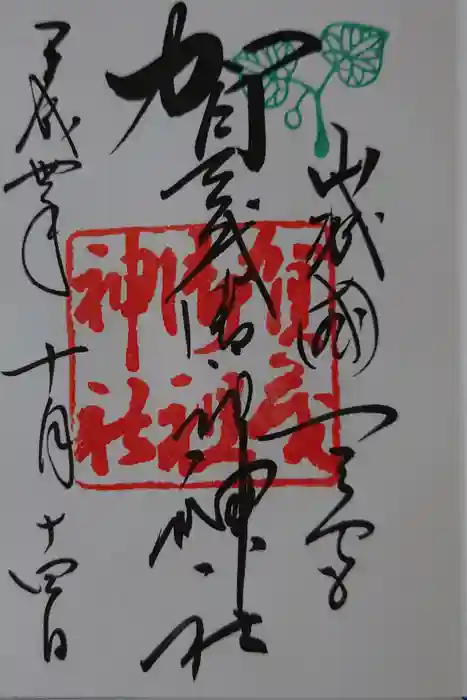 山城國一之宮
賀茂御祖神社
平成年十月十四日
賀茂
御祖
神社